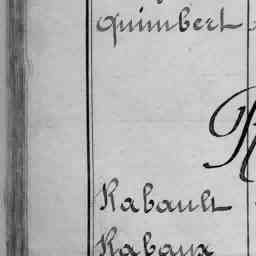 Quimbert
R
Rabault
Rabaux